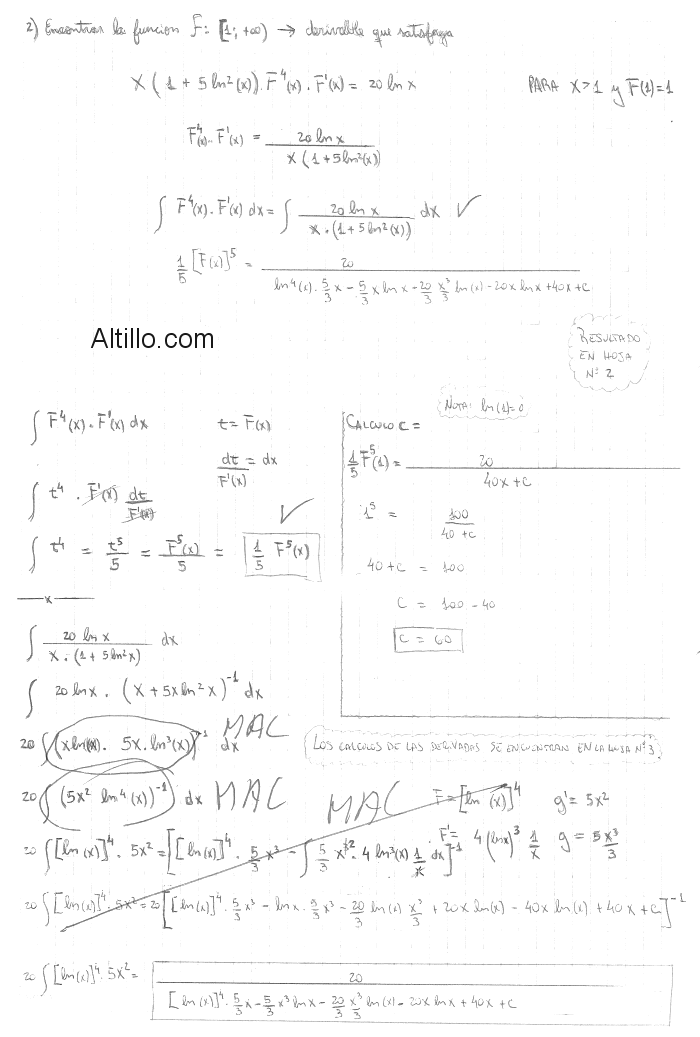 2) Encontrar la funcion F: [1; +∞) → derivable que satisfaga
x (1 + 5 ln²(x)). F⁴(x). F'(x) = 20 ln x PARA x>1 y F(1)=1
F⁴(x). F'(x) = 20 ln x / x (1+5 ln²(x))
∫ F⁴(x). F'(x) dx = ∫ 20 ln x / x.(1+5 ln²(x)) dx ✓
1/5 [F(x)]⁵ = 20 / ln⁴(x). 5/3 x - 5/3 x ln x - 20/3 x³/3 ln(x) - 20x ln x + 40x + C
Altillo.com
RESULTADO
EN HOJA
Nº 2
∫ F⁴(x). F'(x) dx t = F(x)
dt/F'(x) = dx
∫ t⁴. F'(x) dt/F'(x)
✓
∫ t⁴ = t⁵/5 = F⁵(x)/5 = 1/5 F⁵(x)
NOTA: ln(1)=0
CALCULO C =
1/5 F⁵(1) = 20 / 40x+C
1⁵ = 100 / 40+C
40+C = 100
C = 100-40
C = 60
x
∫ 20 ln x / x.(1+5 ln²x) dx
∫ 20 ln x. (x + 5x ln²x)⁻¹ dx
20 ∫ (x ln(x). 5x. ln³(x))⁻¹ dx MAC
LOS CALCULOS DE LAS DERIVADAS SE ENCUENTRAN EN LA HOJA Nº3.
20 ∫ (5x² ln⁴(x))⁻¹ dx MAC MAC
F = [ln (x)]⁴ g' = 5x²
F' = 4(ln x)³ 1/x g = 5x³/3
20 ∫ [ln(x)]⁴. 5x² = [[ln(x)]⁴. 5/3 x³ - ∫ 5/3 x³². 4 ln³(x) 1/x dx]⁻¹
20 ∫ [ln(x)]⁴. 5x² = 20 [[ln(x)]⁴. 5/3 x³ - ln x. 5/3 x³ - 20/3 ln(x) x³/3 + 20x ln(x) - 40x ln(x) + 40x + C]⁻¹
20 ∫ [ln(x)]⁴. 5x² = 20 / [ln(x)]⁴. 5/3 x - 5/3 x³ ln x - 20/3 x³/3 ln(x) - 20x ln x + 40x + C